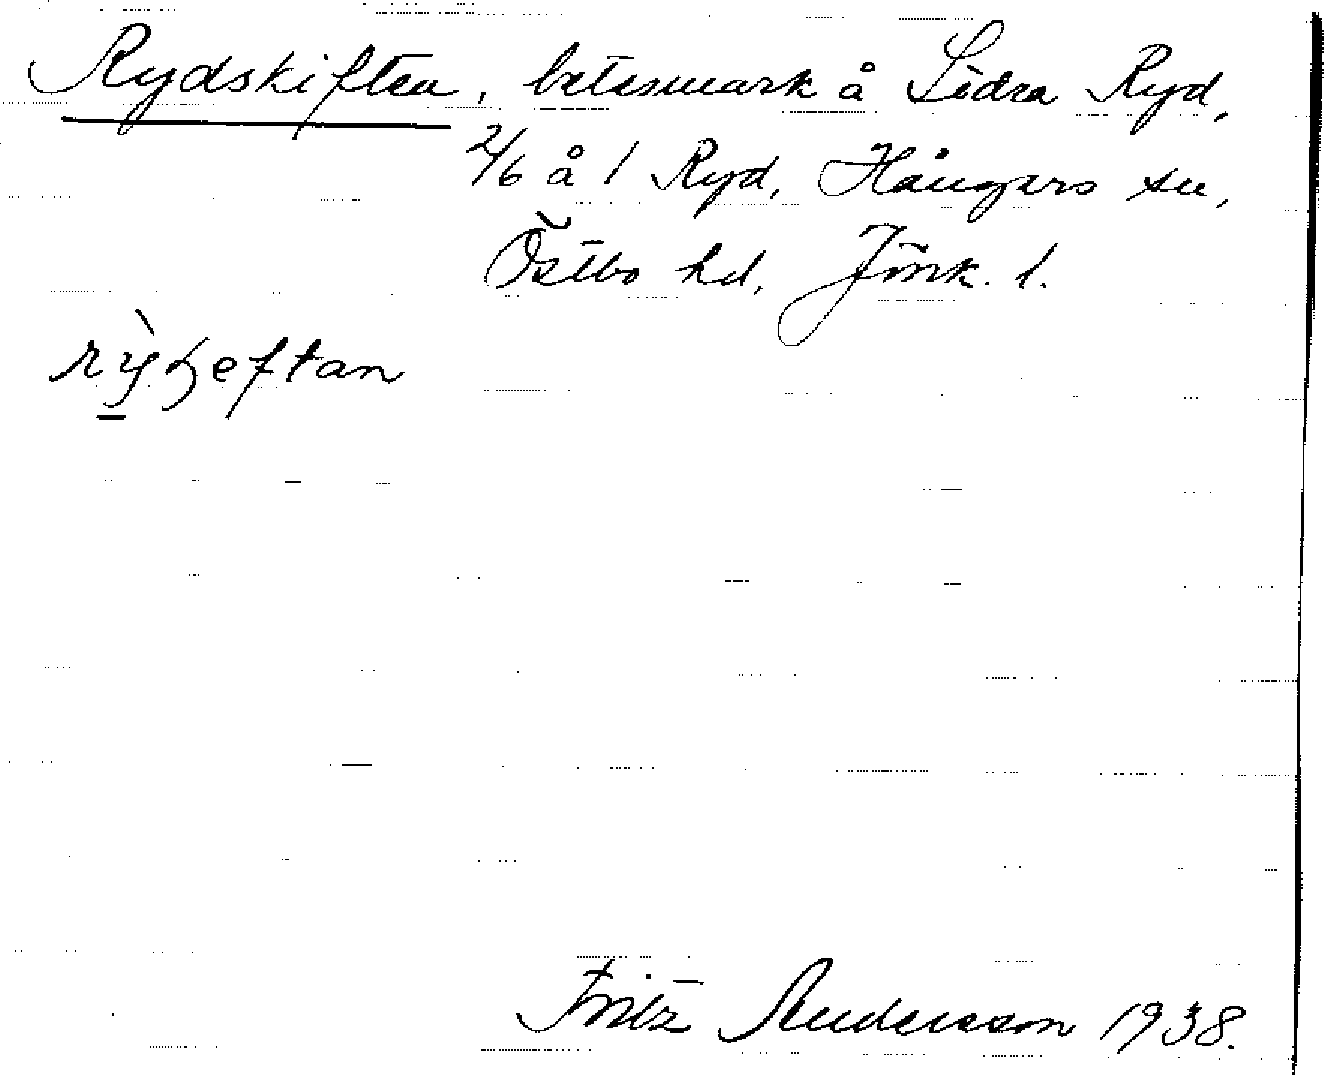 Rydskiften, betesmark å Södra Ryd,
2/6 å 1 Ryd, Hångers sn,
Östbo hd, Jönk. l.
rỳʒeftan
Fritz Andersson 1938.